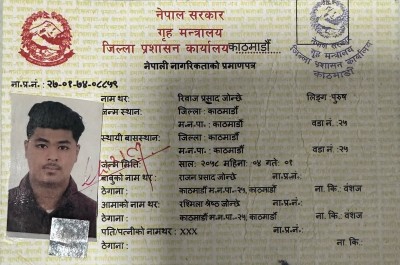 नेपाल सरकार
गृह मन्त्रालय
जिल्ला प्रशासन कार्यालय काठमाडौं
नेपाली नागरिकताको प्रमाणपत्र
ना.प्र.नं. : २७-०१-७४-०८८५९
नाम थर: रिवाज प्रसाद जोन्छे लिङ्ग पुरुष
जन्म स्थान: जिल्ला : काठमाडौं
म.न.पा. : काठमाडौं वडा नं.:२५
स्थायी बासस्थान: जिल्ला : काठमाडौं
म.न.पा. : काठमाडौं वडा नं.:२५
जन्म मिति: साल: २०५८ महिना: ०४ गते: ०१
बाबुको नाम थर: राजन प्रसाद जोन्छे ना.प्र.नं.:
ठेगाना: काठमाडौं म.न.पा.-२५, काठमाडौं ना. कि.: वंशज
आमाको नाम थर: रश्मिला श्रेष्ठ जोन्छे ना.प्र.नं.:
ठेगाना: काठमाडौं म.न.पा.-२५, काठमाडौं ना. कि.: वंशज
पति/पत्नीको नामथर: XXX ना.प्र.नं.:
ठेगाना: ना. कि.: